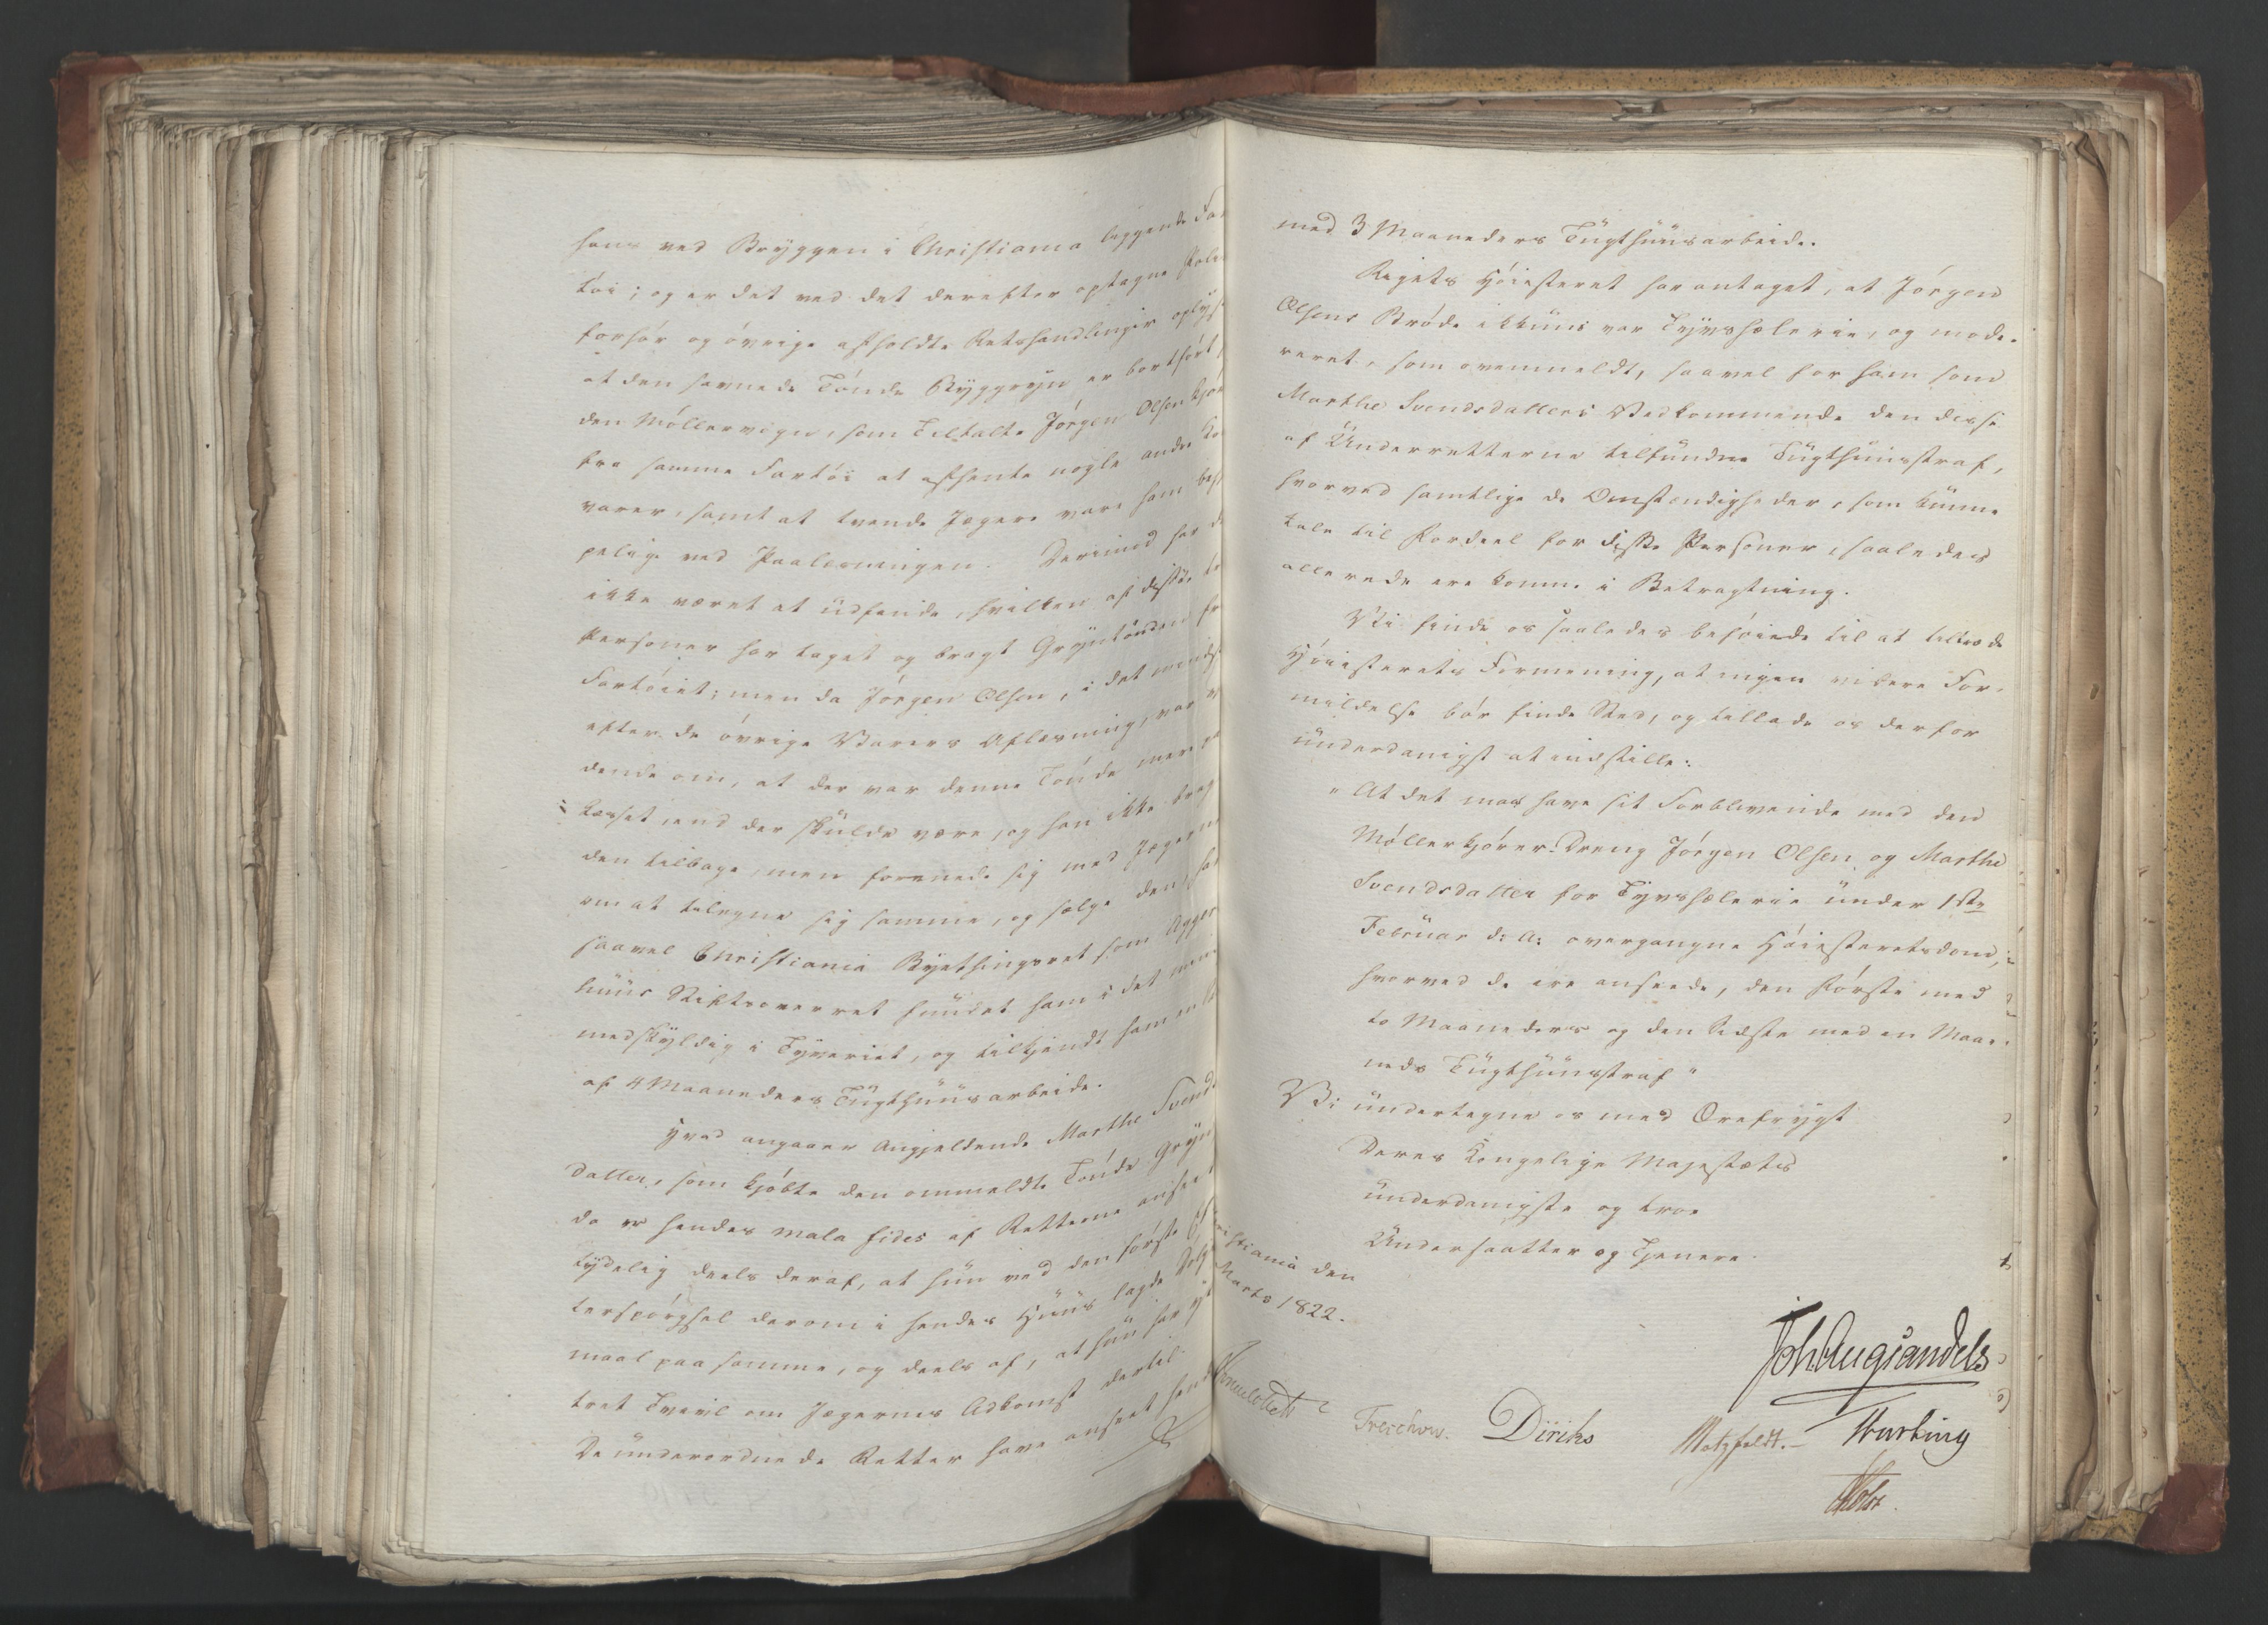 hans ved Bryggen i Christiania liggende Far
töi; og er det ved det derefter optagne Poli
forhör og övrige afholdte Retshandlinger oplyst
at den savnede Tönde Byggryn er bortfört
den Möllervogn, som Tiltalte Jörgen Olsen kjör
fra samme Fartöi at afhente nogle andre Ko
varer, samt at tvende Jægere vare ham
ved Paalæsningen. Derimod har d
ikke været at udfinde, hvilken af disse tr
Personer har taget og bragt Gryntönden fr
Fartöiet; men da Jörgen Olsen, i det mindst
efter de övrige Varers Aflæsning, var v
dende om, at der var denne Tönde mere p
Læsset, end der skulde være, og han ikke brag
den tilbage, men forenede sig med Jægerne
om at tilegne sig samme, og sælge den, ha
saavel Christiania Byethingsret som Agger
huus Stiftsoverret fundet ham i det min
medskyldig i Tyveriet, og tilkjendt ham en St
af 4 Maaneders Tugthuusarbeide.
Hvad angaaer Angjeldende Marthe Svends
datter, som kjöbte den ommeldte Tönde Gryn
da er hendes mala fides af Retterne anseet
tydelig deels deraf, at hun ved den förste Ef
terspörgsel derom i hendes Huus lagde Dölg
maal paa samme, og deels af, at hun har yt
tret Tvivl om Jægernes Adkomst dertil.
De underordnede Retter have anseet hende
med 3 Maaneders Tugthuusarbeide.
Rigets Höiesteret har antaget, at Jörgen
Olsens Bröde ikkuns var Tyvshæleri, og mode-
reret, som ovenmeldt, saavel for ham som
Marthe Svendsdatters Vedkommende den disse
af Underretterne tilfundne Tugthuusstraf,
hvorved samtlige de Omstændigheder, som kunne
tale til Fordeel for disse Personer, saaledes
allerede ere komne i Betragtning.
Vi finde os saaledes beföiede til at tiltræde
Höiesterets Formening, at ingen videre For-
mildelse bör finde Sted, og tillade os derfor
underdanigst at indstille:
"At det maa have sit Forblivende med den
Möllerkjörer-Dreng Jörgen Olsen og Marthe
Svendsdatter for Tyvshæleri under 1ste
Februar d: A: overgangne Höiesteretsdom,
hvorved de ere anseede, den Förste med
to Maaneders og den Sidste med en Maa-
neds Tugthuusstraf"
Vi undertegne os med Ærefrygt
Deres Kongelige Majestæts
underdanigste og troe
Undersaatter og Tjenere
istiania den
Marts 1822.
Joh Aug Sandels
Treschow. Diriks Motzfeldt. 
Holst.